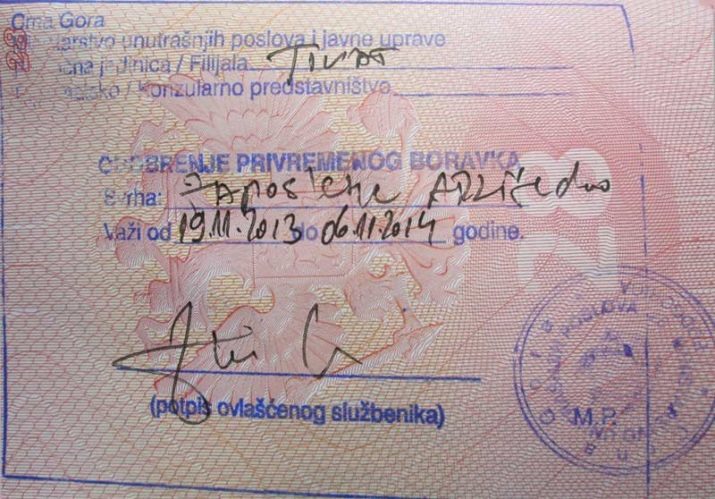 Crna Gora
unutrašnjih poslova i javne uprave
jedinica / Filijala Tivat
/ Konzularno predstavništvo
ODOBRENJE PRIVREMENOG BORAVKA
Svrha: zaposlene
Važi od 19.11.2013 do 06.11.2014 godine.
(potpis ovlašćenog službenika)
M.P.
28